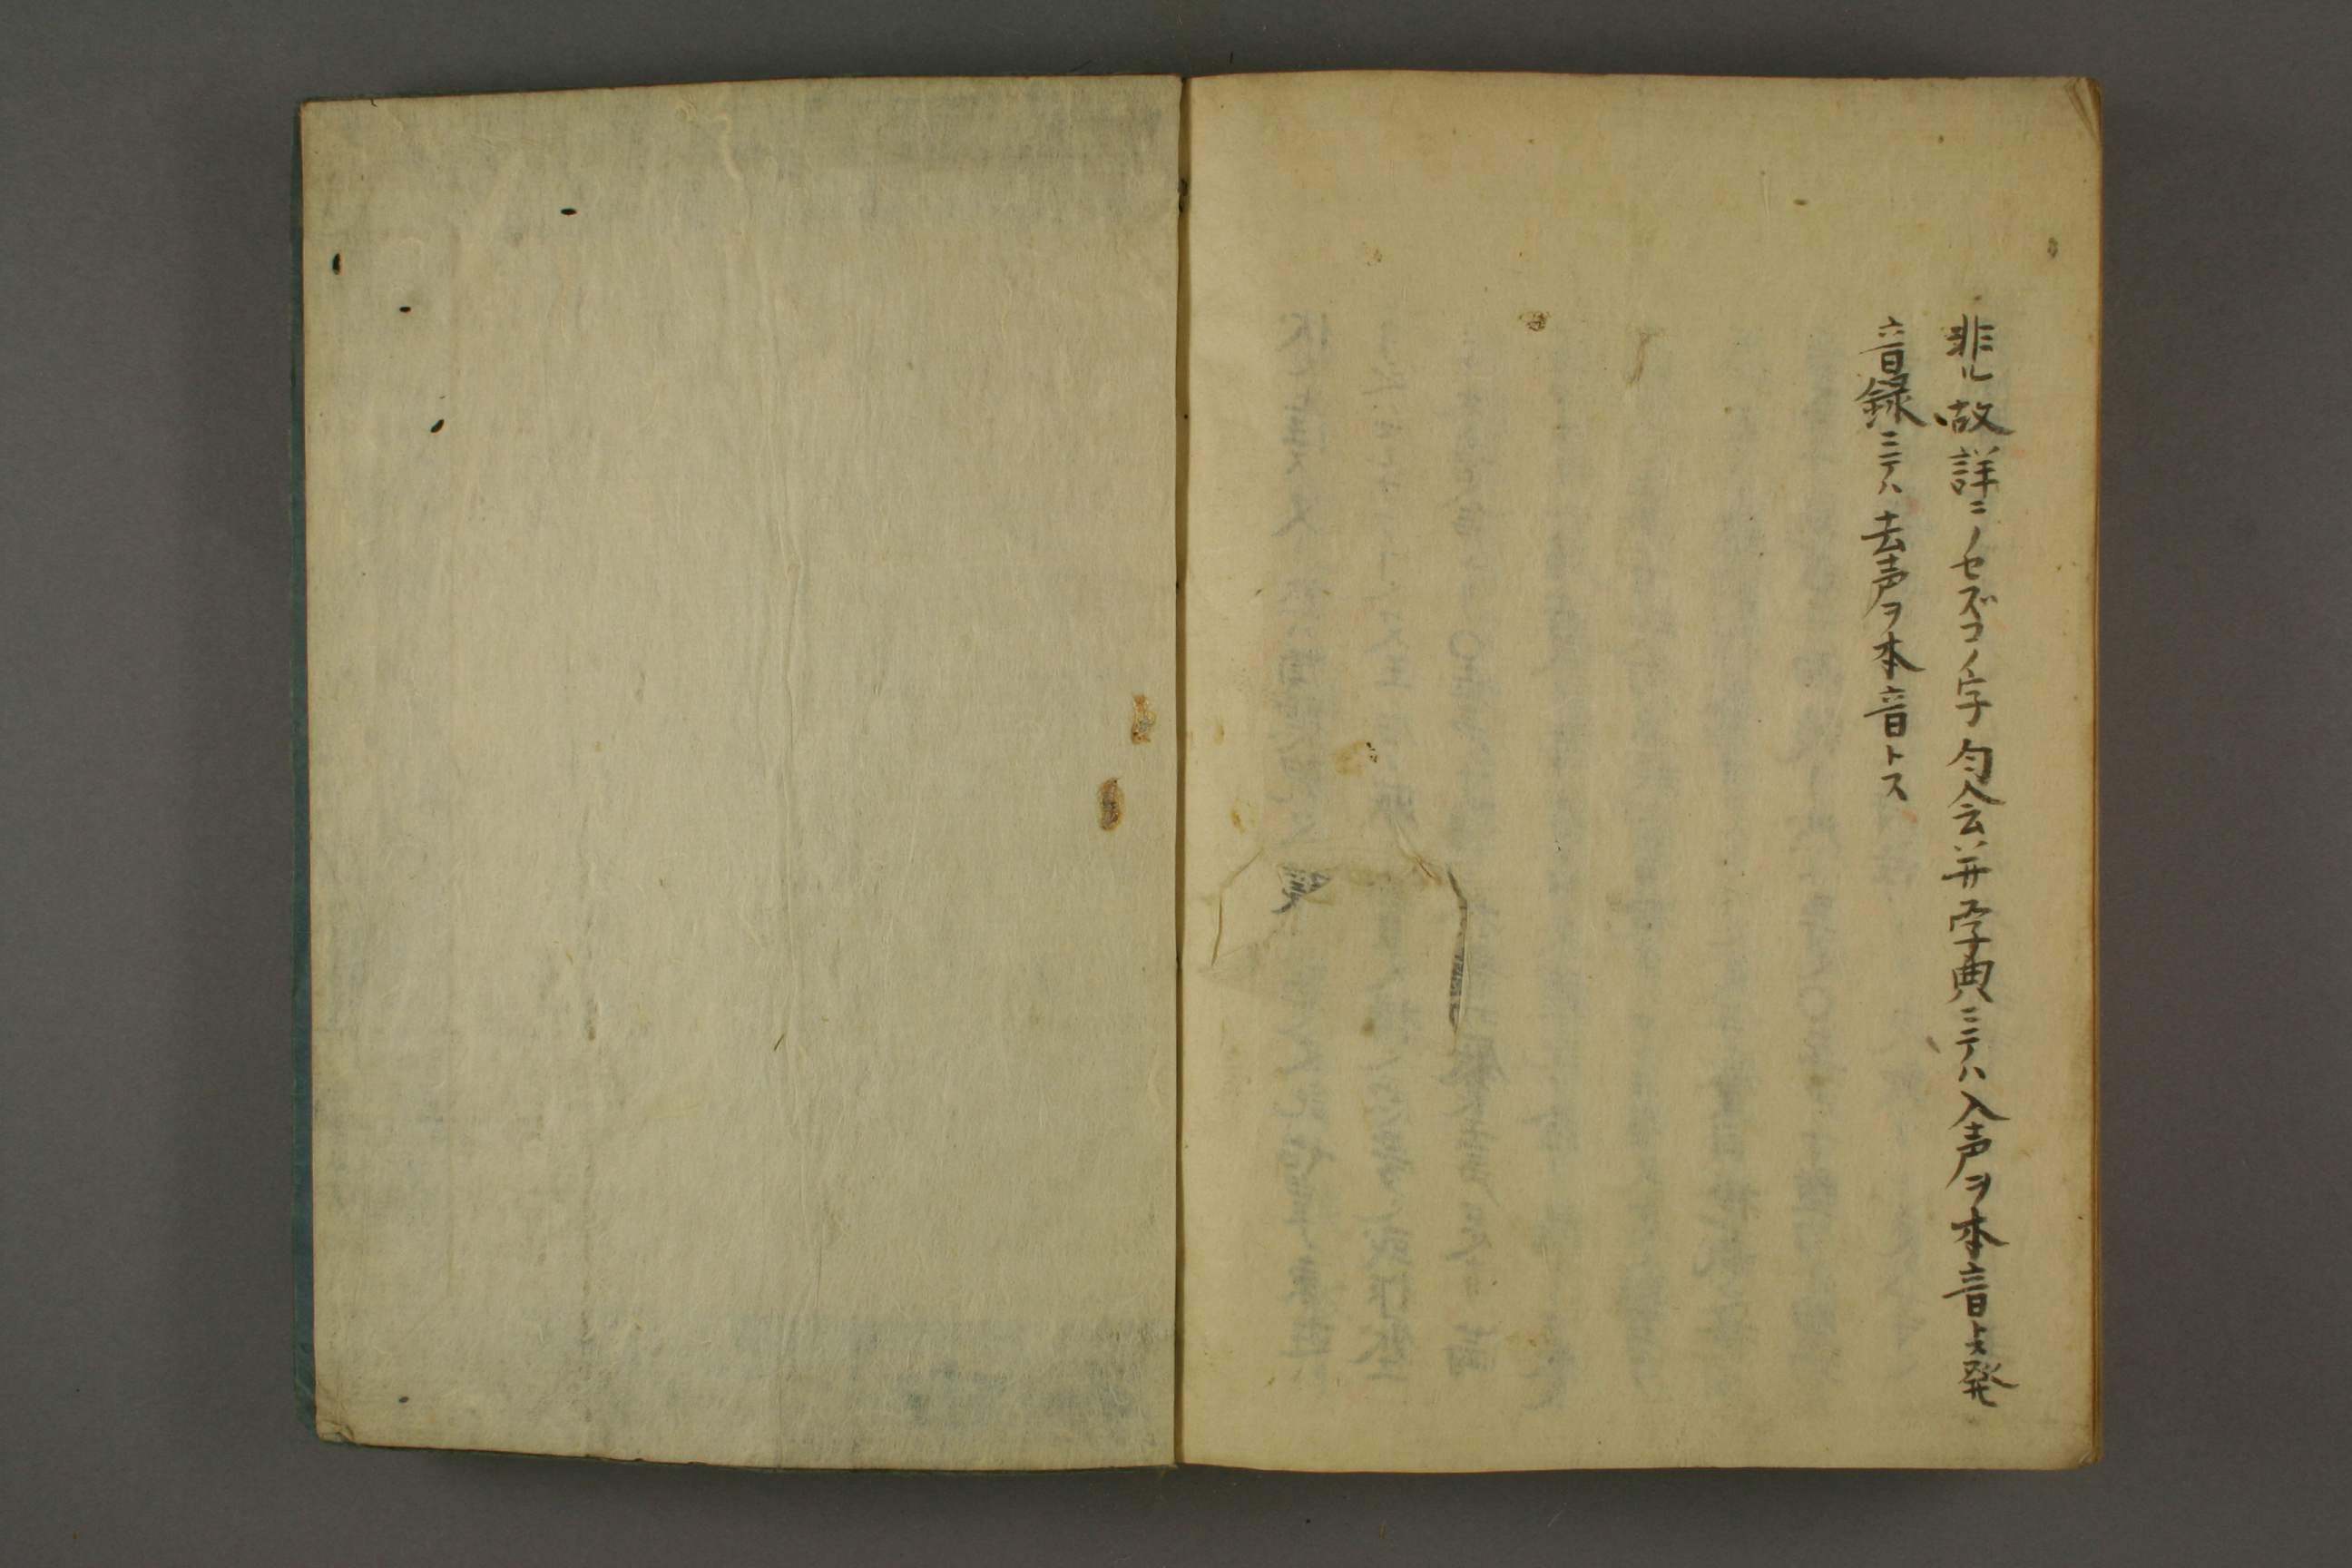 非ル故詳ニノセズコノ字匀会并字典ニテハ入声ヲ本音トス発
音録ニテハ去声ヲ本音トス